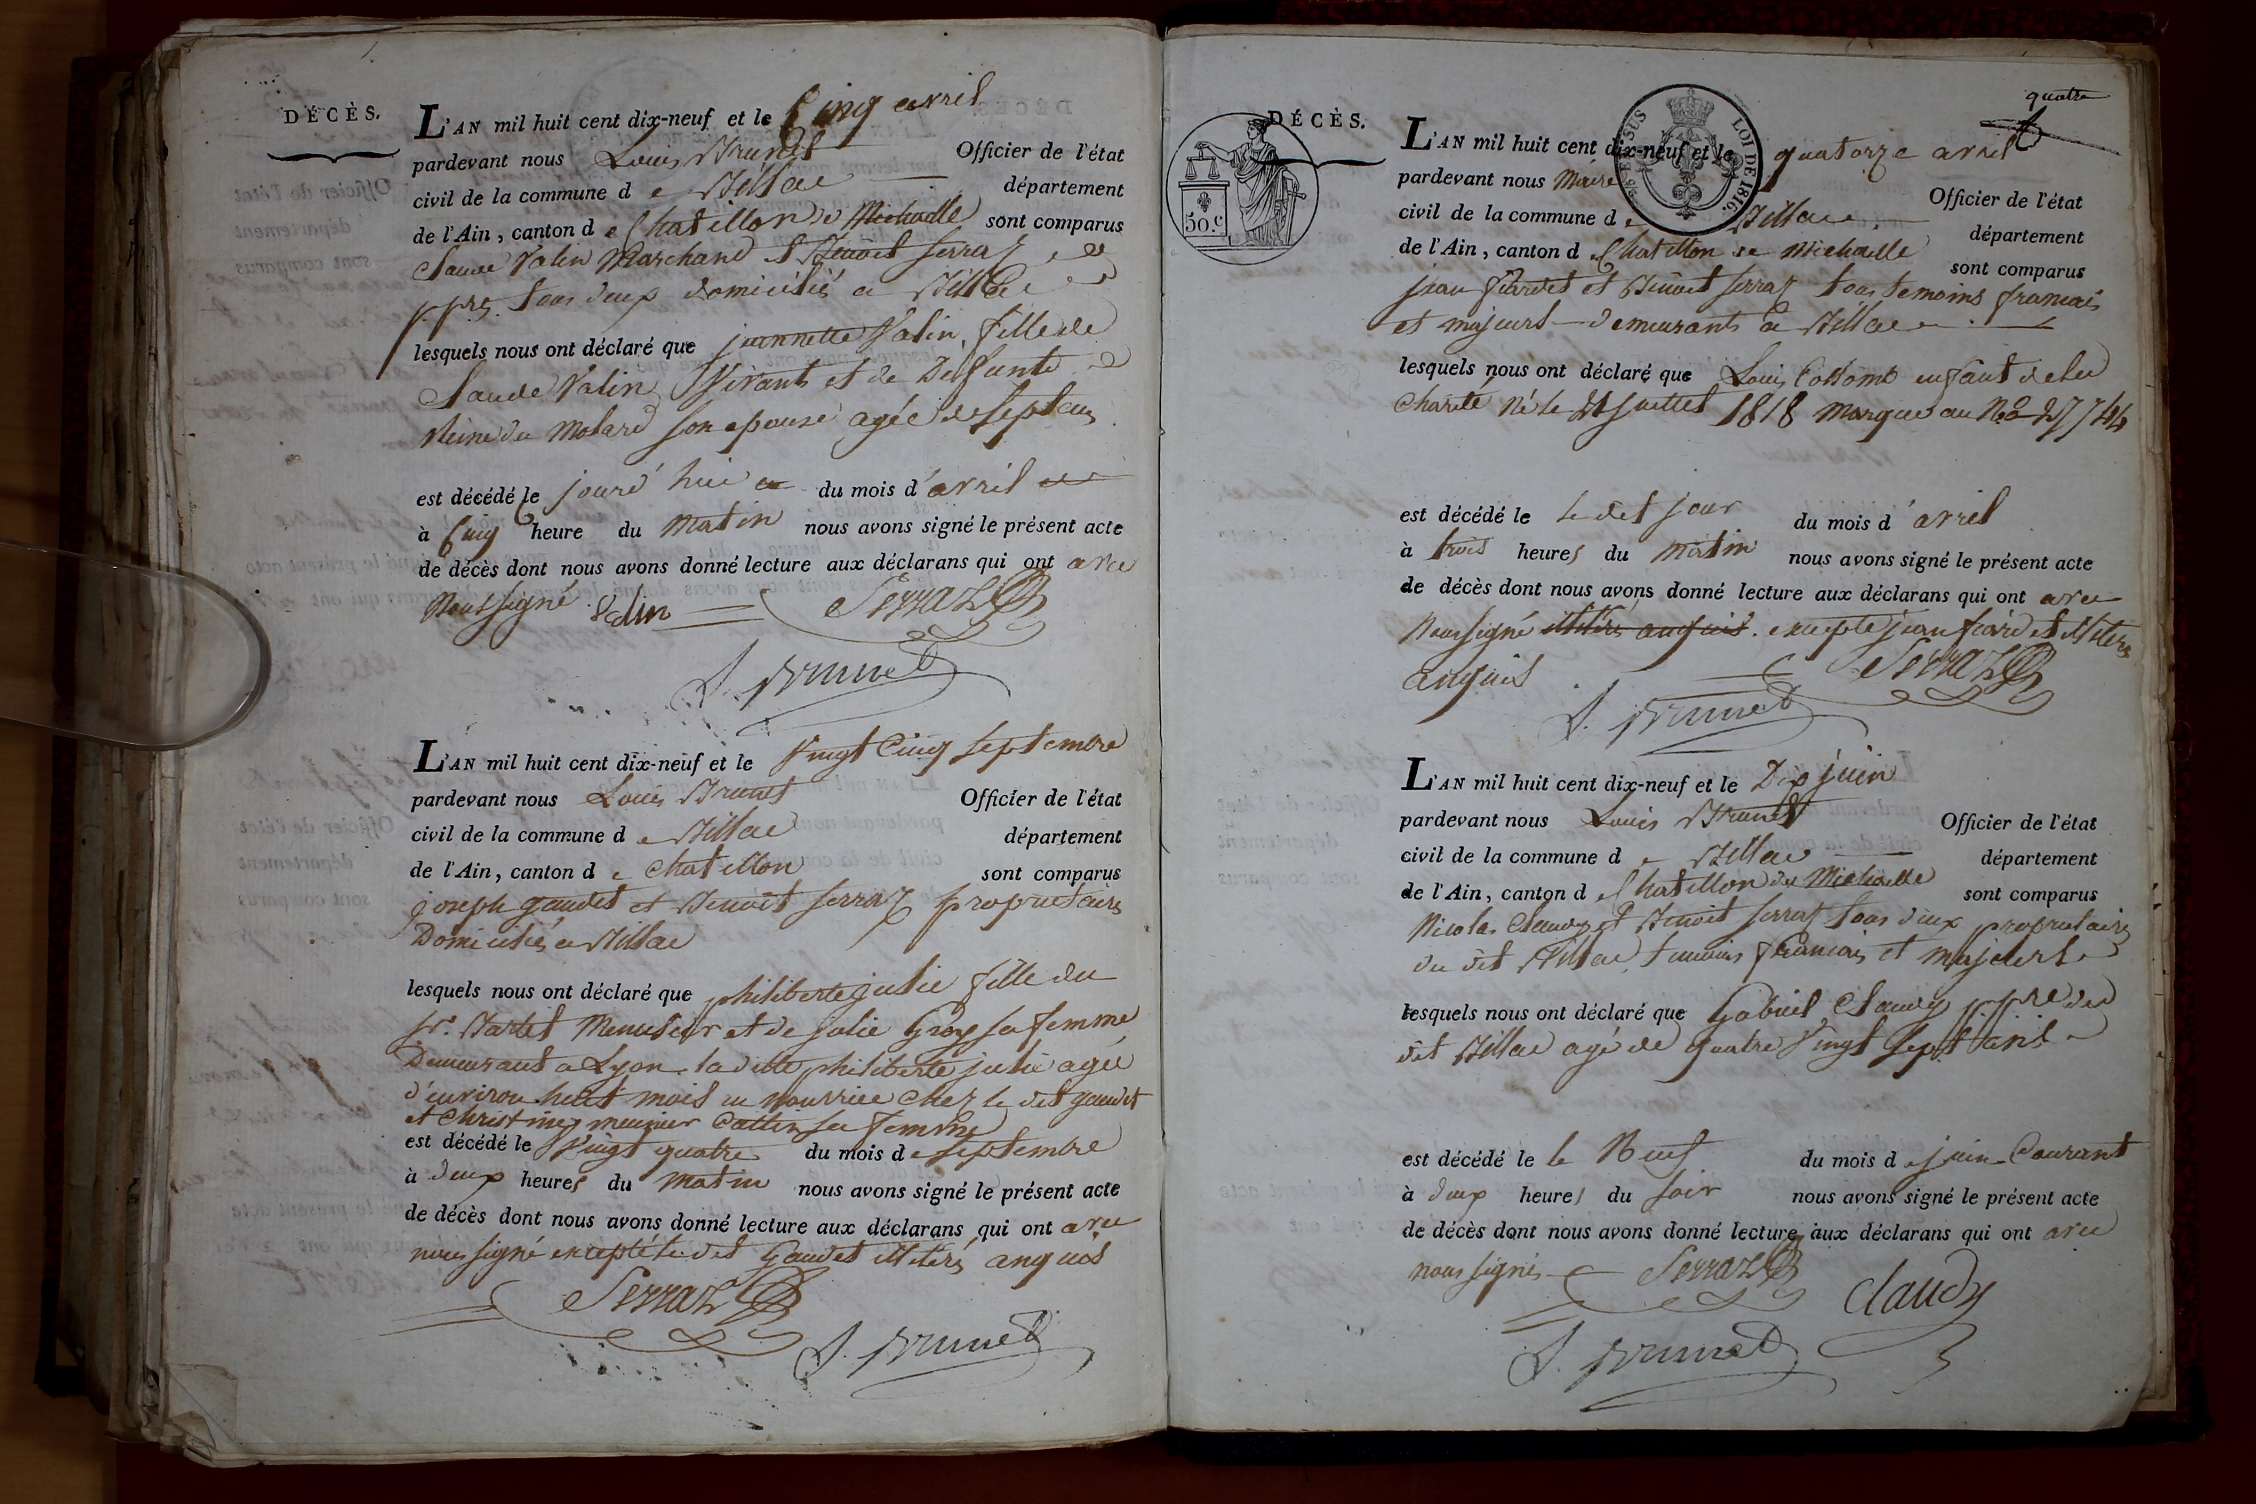 DÉCÈS.
L'AN mil huit cent dix-neuf et le Cinq avril
pardevant nous Louis Brunet Officier de l'état
civil de la commune de Billiac département
de l'Ain, canton de Chatillon de Michaille sont comparus
Claude Valin Marchand et Benoit Serraz
ppres. tous deux domiciliés a Billiac
lesquels nous ont déclaré que jeannette Valin, fille de
Claude Valin, Vivant et de Defunte
Reine du Molard son epouse agée de sept ans
est décédé le jourd'hui du mois d'avril
à Cinq heure du Matin nous avons signé le présent acte
de décès dont nous avons donné lecture aux déclarans qui ont avec
Nous signé Valin Serraz
L. Brunet
L'AN mil huit cent dix-neuf et le Vingt Cinq septembre
pardevant nous Louis Brunet Officier de l'état
civil de la commune de Billiac département
de l'Ain, canton de Chatillon sont comparus
joseph gaudet et Benoit Serraz proprietaires
Domiciliés a Billiac
lesquels nous ont déclaré que philiberte julie fille du
sr. Bartet Menuisier et de julie Groz sa femme
Demeurant a Lyon. la ditte philiberte julie agée
d'environ huit mois en nourrice chez le dit gaudet
et Christine meunier Cattin sa femme
est décédé le Vingt quatre du mois de septembre
à deux heures du matin nous avons signé le présent acte
de décès dont nous avons donné lecture aux déclarans qui ont avec
nous signé excepté le dit Gaudet illitéré enquis
Serraz
L. Brunet
quatre
DÉCÈS.
50.c
LOI DE 1816.
L'AN mil huit cent dix-neuf et le quatorze avril
pardevant nous Maire Officier de l'état
civil de la commune de Billiac département
de l'Ain, canton de Chatillon de Michaille sont comparus
jean fiardet et Benoit Serraz tous temoins francais
et majeurs demeurants a Billiac
lesquels nous ont déclaré que Louis Collomb enfant de la
Charité né le 21 juillet 1818 marqué au No
est décédé le le dit jour du mois d'avril
à trois heures du matin nous avons signé le présent acte
de décès dont nous avons donné lecture aux déclarans qui ont avec
Nous signé illitéré enquis. excepté jean fiardet illitéré
enquis Serraz
L. Brunet
L'AN mil huit cent dix-neuf et le Dix juin
pardevant nous Louis Brunet Officier de l'état
civil de la commune de Billiac département
de l'Ain, canton de Chatillon de Michaille sont comparus
Nicolas Claudy et Benoit Serraz tous deux proprietaires
du dit Billiac, temoins francais et majeurs
lesquels nous ont déclaré que Gabriel Claudy ppre du
dit Billiac agé de quatre Vingt Sept ans
est décédé le le Neuf du mois de juin Courant
à deux heures du soir nous avons signé le présent acte
de décès dont nous avons donné lecture aux déclarans qui ont avec
nous signés Serraz Claudy
L. Brunet